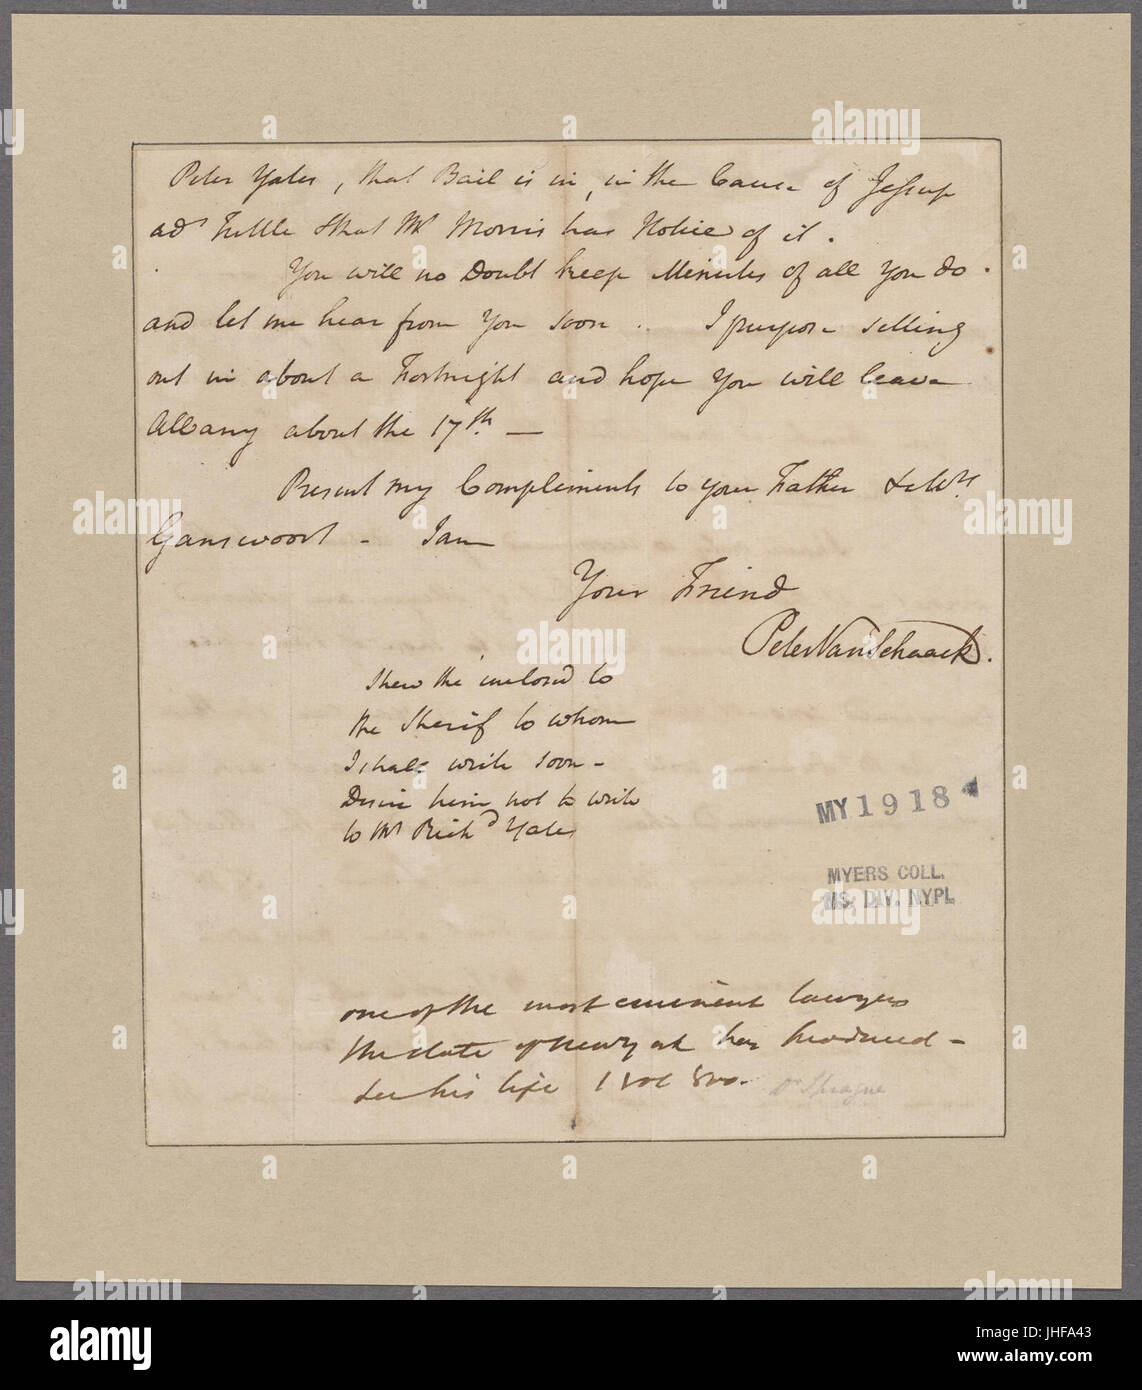 Peter Yates, that Bail is in, in the Cause of Jessup
ads Tuttle & that Mr Morris has Notice of it.
You will no Doubt keep Minutes of all you do.
and let me hear from you soon. I purpose setting
out in about a Fortnight and hope you will leave
Albany about the 17th —
Present my Compliments to your Father & Mrs
Ganswoort - I am
Your Friend
Peter Van Schaack.
Shew the inclosed to
the Sherif to whom
I shall write soon -
Desire him not to write
to Mr Richd Yates
MY 1918
MYERS COLL.
MS. DIV. NYPL
one of the most eminent lawyers
the State of New York has produced -
See his life 1 vol 8vo. Dr Sprague
alamy
Image ID: JHFA43
www.alamy.com